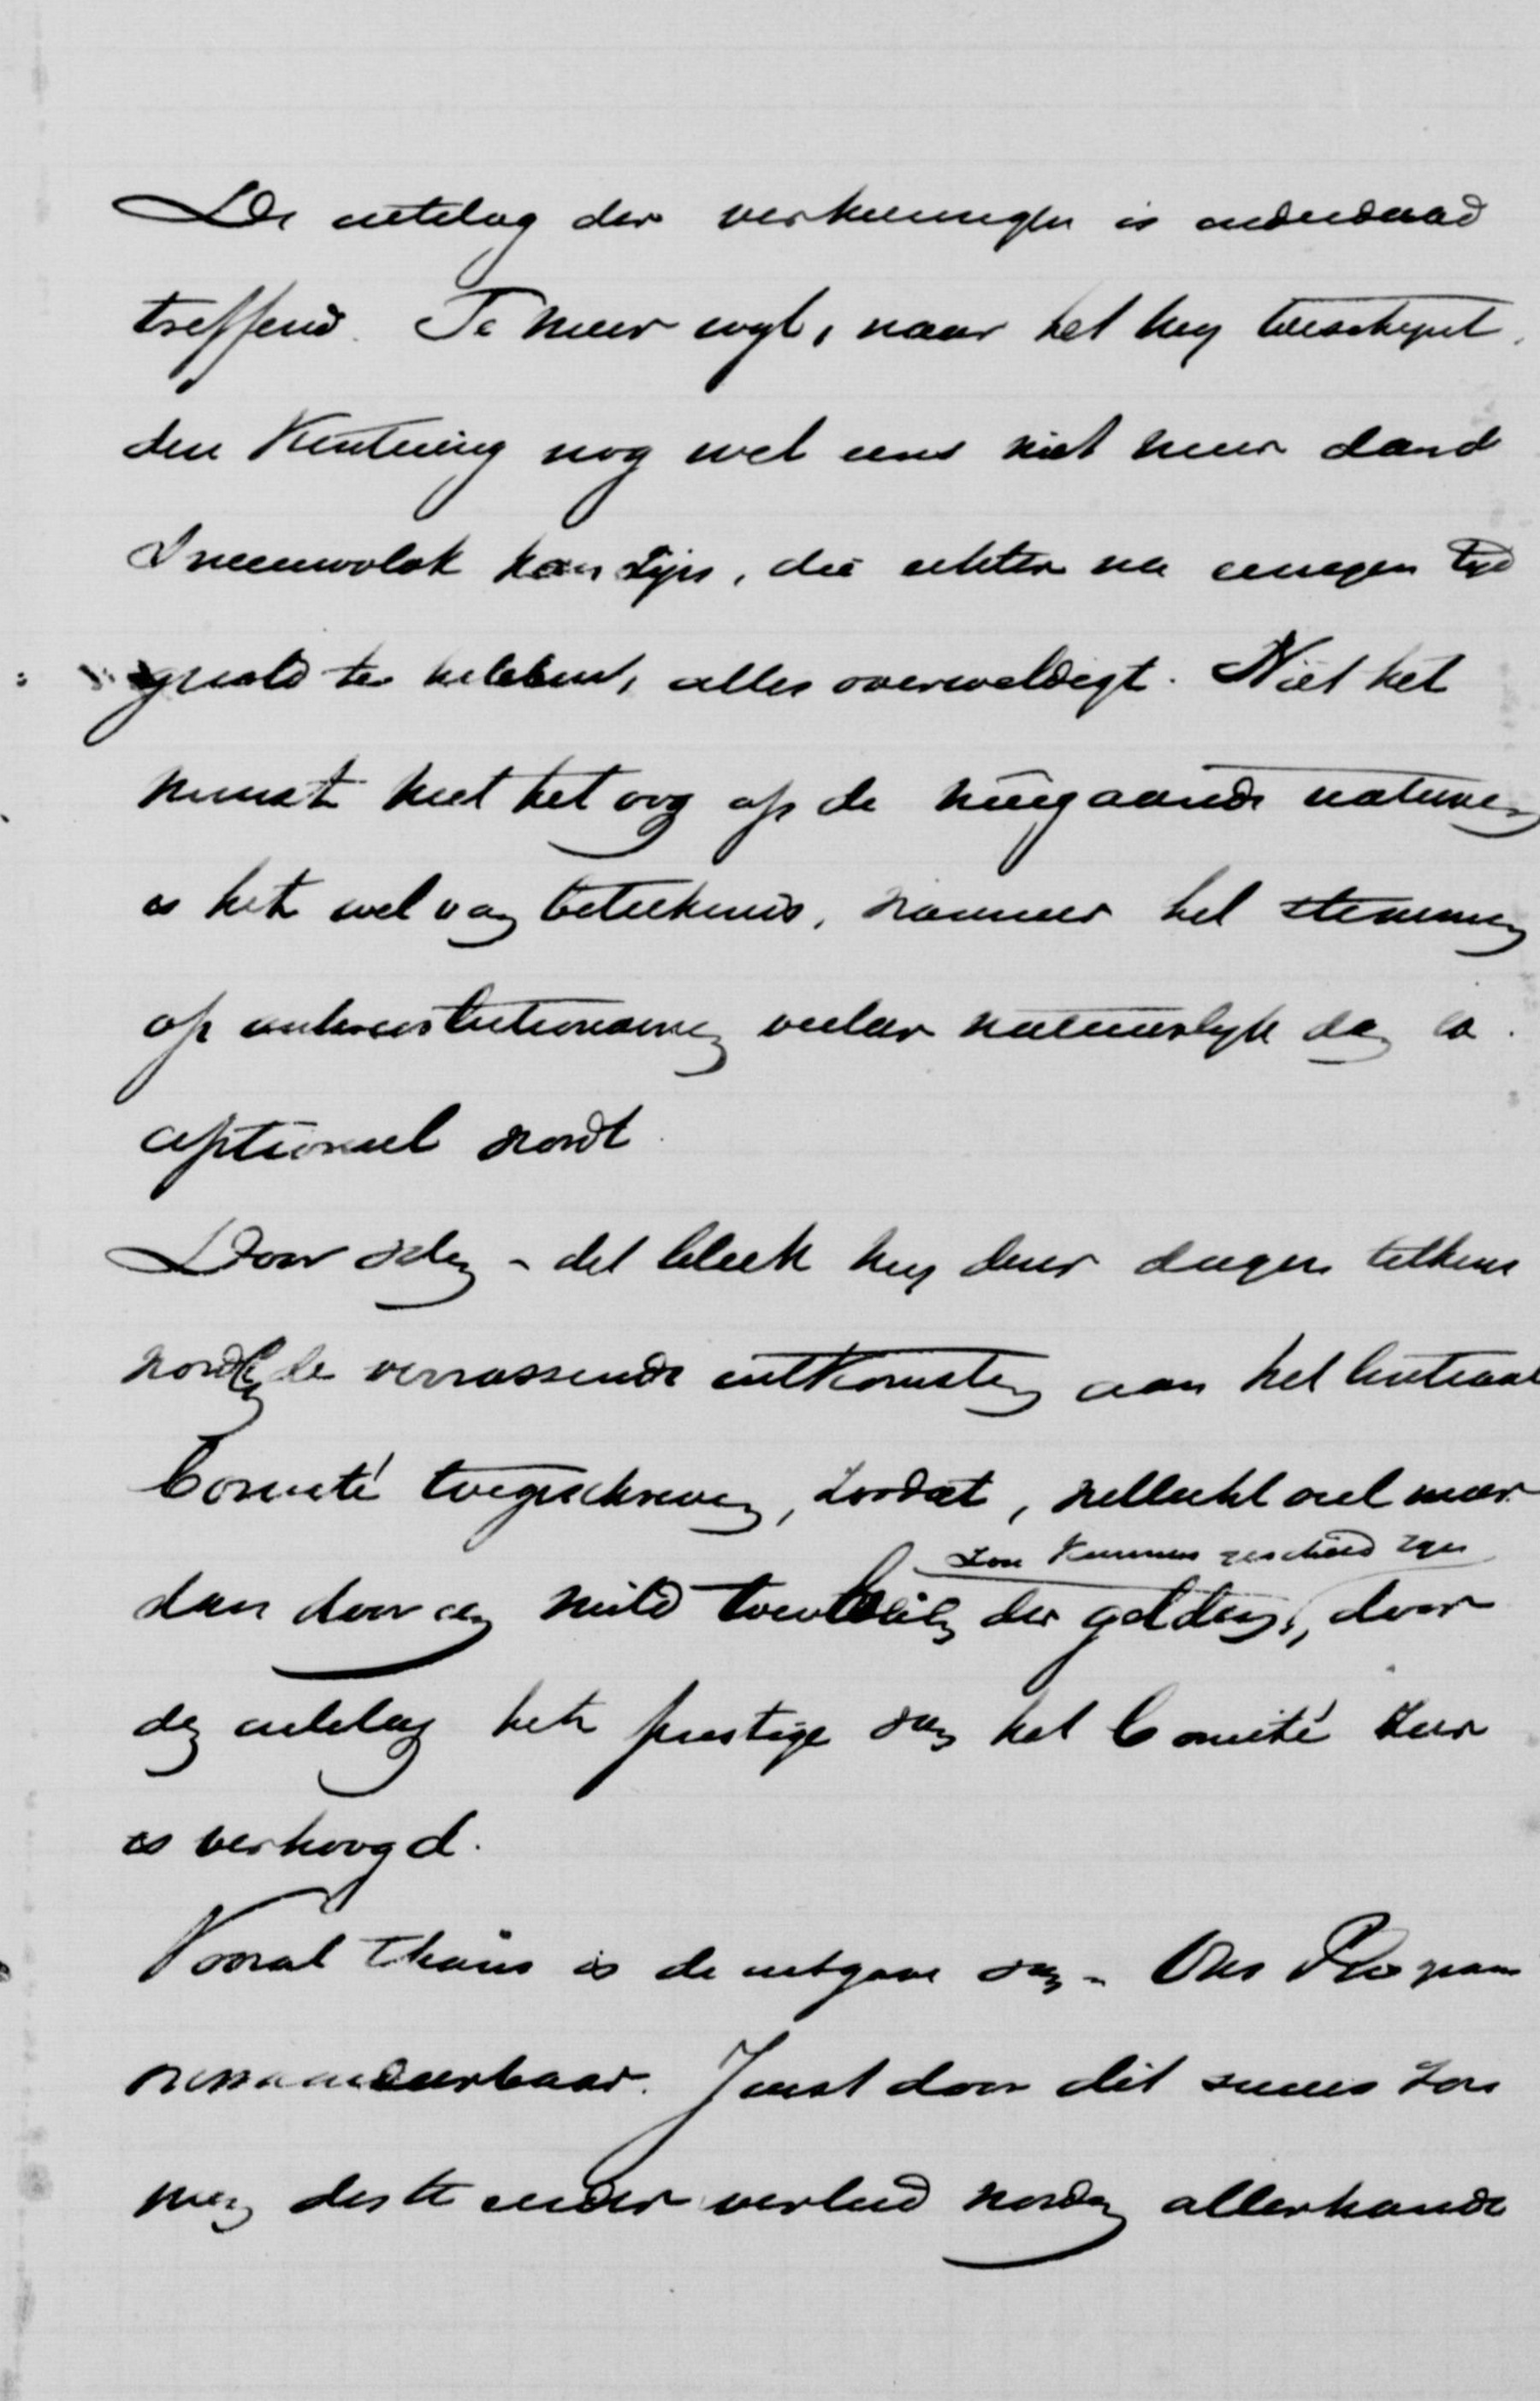 De uitslag der verkiezingen is inderdaad
treffend. Te meer wijl, naar het my toeschynt,
deze Kentering nog wel eens niet meer dan de
Sneeuwvlok kan zijn, die echter na eenigen tyd
gerold te hebben, alles overweldigt. Niet het
minst met het oog op de meegaande naturen
is het wel van beteekenis, wanneer het stemmen
op antirevolutionairen velen natuurlyk dan ex-
ceptioneel wordt.
Door velen - dat bleek my dezer dagen telkens
worden de verrassende uitkomsten aan het Centraal
Comité toegeschreven, zoodat, wellicht veel meer
zou kunnen geschied zyn
dan door een milde toevloeiing der gelden, door
den uitslag het prestige van het Comité zeer
is verhoogd.
Vooral thans is de uitgave van "Ons Program
onwaardeerbaar. Juist door dit succes zou
men des te eerder verleid worden allerhande